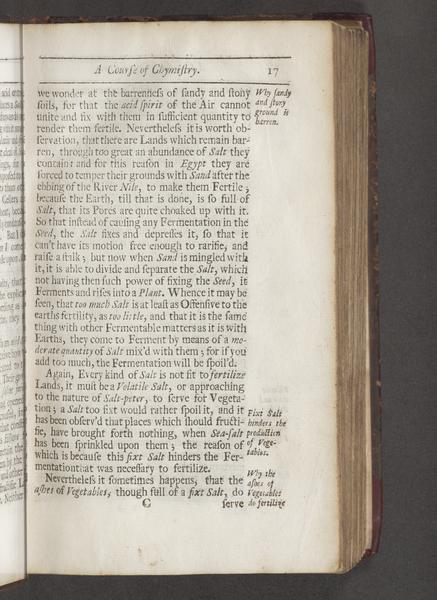 A Course of Chymiſtry. 17
we wonder at the barrenneſs of ſandy and ſtony
ſoils, for that the acid ſpirit of the Air cannot
unite and fix with them in ſufficient quantity to
render them fertile. Nevertheleſs it is worth ob-
ſervation, that there are Lands which remain bar-
ren, through too great an abundance of Salt they
containt and for this reaſon in Egypt they are
forced to temper their grounds with Sand after the
ebbing of the River Nile, to make them Fertile;
becauſe the Earth, till that is done, is ſo full of
Salt, that its Pores are quite choaked up with it.
So that inſtead of cauſing any Fermentation in the
Seed, the Salt fixes and depreſſes it, ſo that it
can't have its motion free enough to rarifie, and
raiſe a ſtalk; but now when Sand is mingled with
it, it is able to divide and ſeparate the Salt, which
not having then ſuch power of fixing the Seed, it
Ferments and riſes into a Plant. Whence it may be
ſeen, that too much Salt is at leaſt as Offenſive to the
earths fertility, as too little, and that it is the ſame
thing with other Fermentable matters as it is with
Earths, they come to Ferment by means of a mo-
derate quantity of Salt mix'd with them; for if you
add too much, the Fermentation will be ſpoil'd.
Again, Every kind of Salt is not fit to fertilize
Lands, it muſt be a Volatile Salt, or approaching
to the nature of Salt-peter, to ſerve for Vegeta-
tion; a Salt too fixt would rather ſpoil it, and it
has been obſerv'd that places which ſhould fructi-
fie, have brought forth nothing, when Sea-ſalt
has been ſprinkled upon them; the reaſon of
which is becauſe this fixt Salt hinders the Fer-
mentation that was neceſſary to fertilize.
Nevertheleſs it ſometimes happens, that the
aſhes of Vegetables, though full of a fixt Salt, do
C ſerve
Why ſandy
and ſtony
ground is
barren.
Fixt Salt
hinders the
production
of Vege-
tables.
Why the
aſhes of
Vegetables
do fertilize